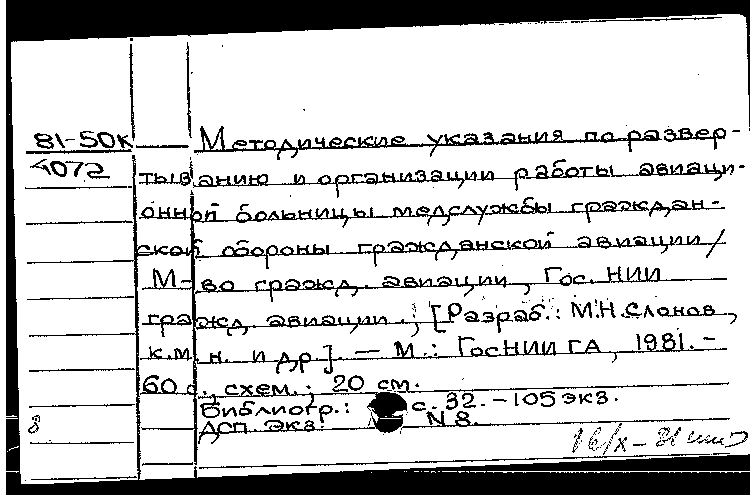 81-50к
4072
Методические указания по развер-
тыванию и организации работы авиаци-
онной больницы медслужбы граждан-
ской обороны гражданской авиации /
М-во гражд. авиации, Гос. НИИ
гражд. авиации.; [Разраб.: М.Н.Слонов,
к.м.н. и др.]. — М.: ГосНИИ ГА, 1981. -
60 с., схем.; 20 см.
Библиогр.: с. 32. - 105 экз.
Дсп. экз. N 8.
8
16/X - 81